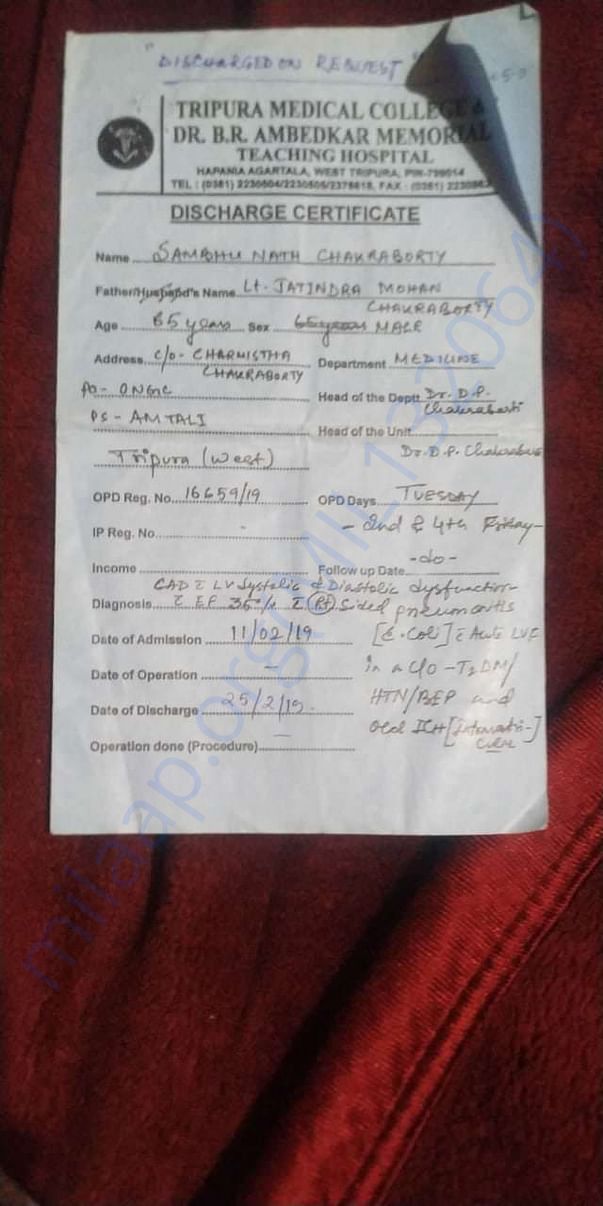 "DISCHARGED ON REQUEST"
TRIPURA MEDICAL COLLEGE &
DR. B.R. AMBEDKAR MEMORIAL
TEACHING HOSPITAL
HAPANIA AGARTALA, WEST TRIPURA, PIN-799014
TEL : (0381) 2230504/2230505/2376618, FAX : (0381)
DISCHARGE CERTIFICATE
Name SAMBHU NATH CHAKRABORTY
Father/Husband's Name Lt. JATINDRA MOHAN
CHAKRABORTY
Age 65 years Sex 65 years MALE
Address c/o- CHARMISTHA Department MEDICINE
CHAKRABORTY
PO- ONGC Head of the Deptt Dr. D.P.
Chakrabarti
PS- AMTALI Head of the Unit
Tripura (West) Dr. D.P.
OPD Reg. No. 16659/19 OPD Days TUESDAY
IP Reg. No. - - 2nd & 4th Friday -
Income Follow up Date -do-
CAD c LV Systolic & Diastolic dysfunction
Diagnosis c EF 35% c (Rt) Sided pneumonitis
Date of Admission 11/02/19 [E. Coli] c Acute LVF
Date of Operation - in a c/o - T2DM/
Date of Discharge 25/2/19. HTN/BEP and
Operation done (Procedure) - Old ICH
milaap.org(MIL-132064)